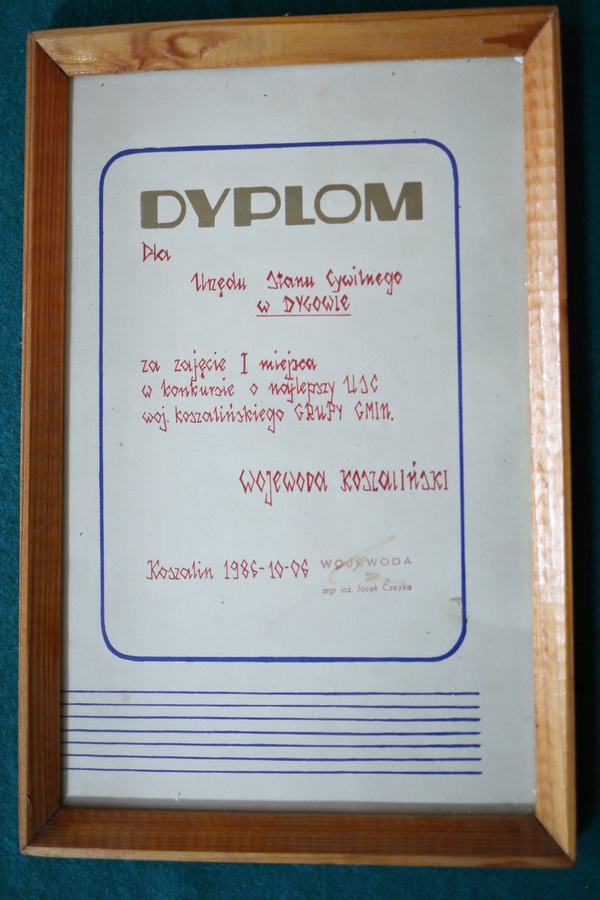 DYPLOM
Dla
Urzędu Stanu Cywilnego
w DYGOWIE
za zajęcie I miejsca
w konkursie o najlepszy USC
woj. koszalińskiego GRUPY GMIN.
WOJEWODA KOSZALIŃSKI
Koszalin 1986-10-06
WOJEWODA
mgr inż. Jacek Czayka